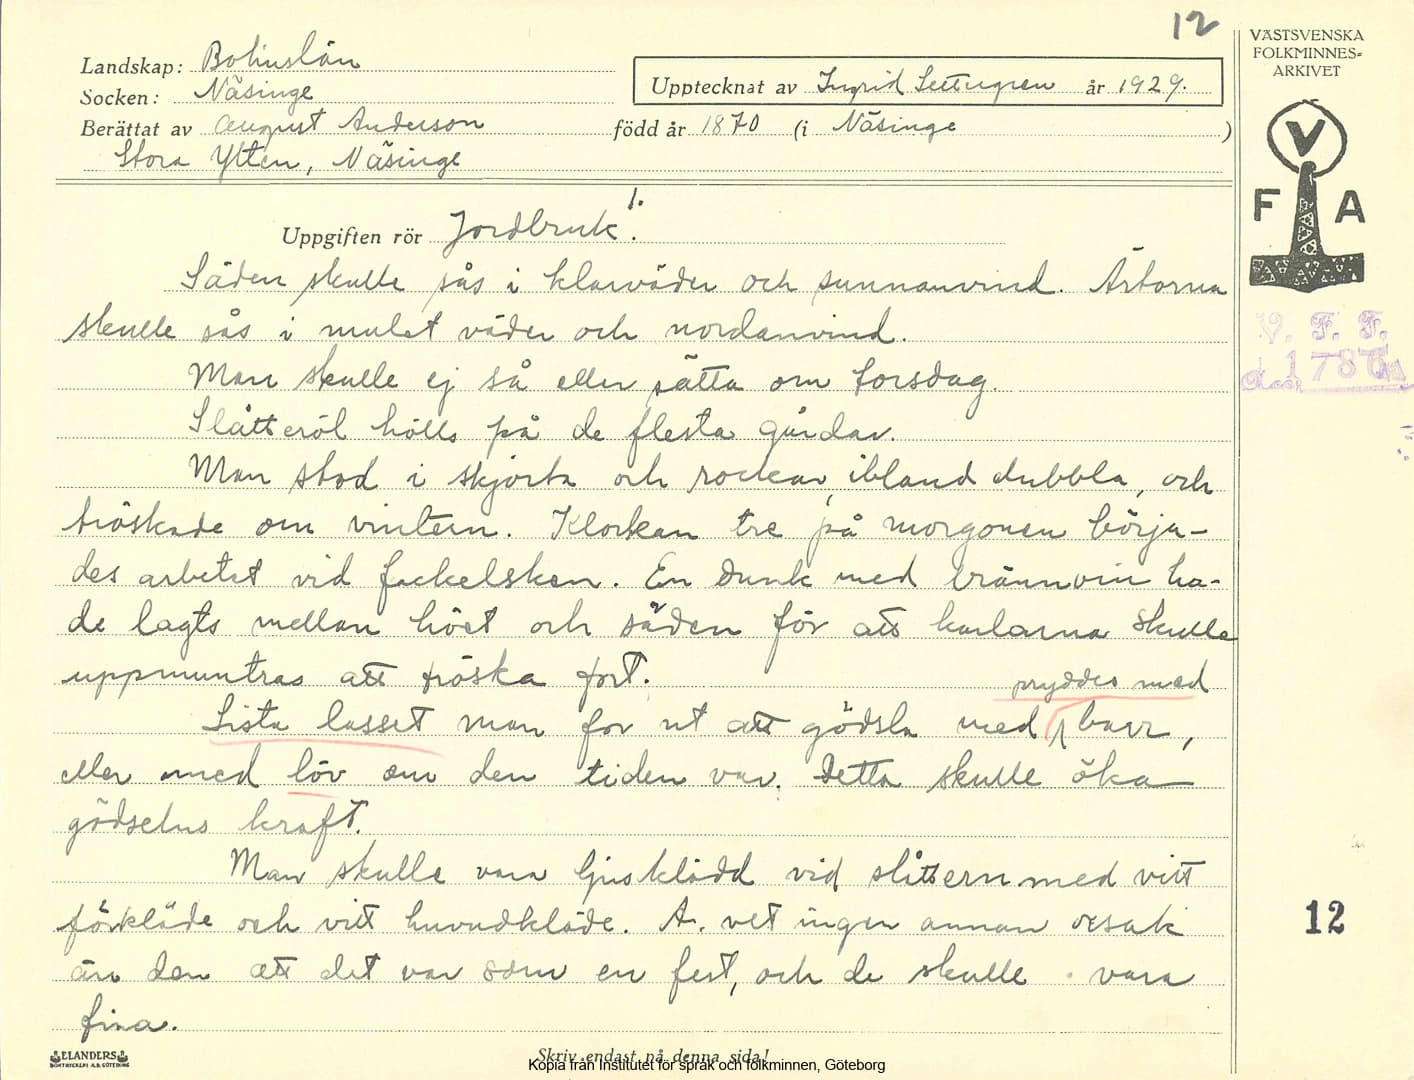 12
VÄSTSVENSKA
FOLKMINNES=
ARKIVET
Landskap: Bohuslän
Upptecknat av Ingrid år 1929.
Socken: Näsinge
Berättat av August Anderson född år 1870 (i Näsinge )
Stora Ytten, Näsinge
V
F A
1.
Uppgiften rör Jordbruk.
Säden skulle sås i klarväder och sunnanvind. Ärtorna
skulle sås i mulet väder och nordanvind.
Man skulle ej så eller sätta om torsdag.
Slåtteröl hölls på de flesta gårdar.
Man stod i skjorta och rockar, ibland dubbla, och
tröskade om vintern. Klockan tre på morgonen börja-
des arbetet vid fackelsken. En dunk med brännvin ha-
de lagts mellan höet och säden för att karlarna skulle
uppmuntras att tröska fort.
pryddes med
Sista lasset man for ut att gödsla med barr,
eller med löv om den tiden var. Detta skulle öka
gödselns kraft.
Man skulle vara ljusklädd vid slåttern med vitt
förkläde och vitt huvudkläde. A. vet ingen annan orsak
än den att det var som en fest, och de skulle vara
fina.
V. F. F.
1786
12
ELANDERS
BOKTRYCKERI A.B. GÖTEBORG
Skriv endast på denna sida!
Kopia från Institutet för språk och folkminnen, Göteborg